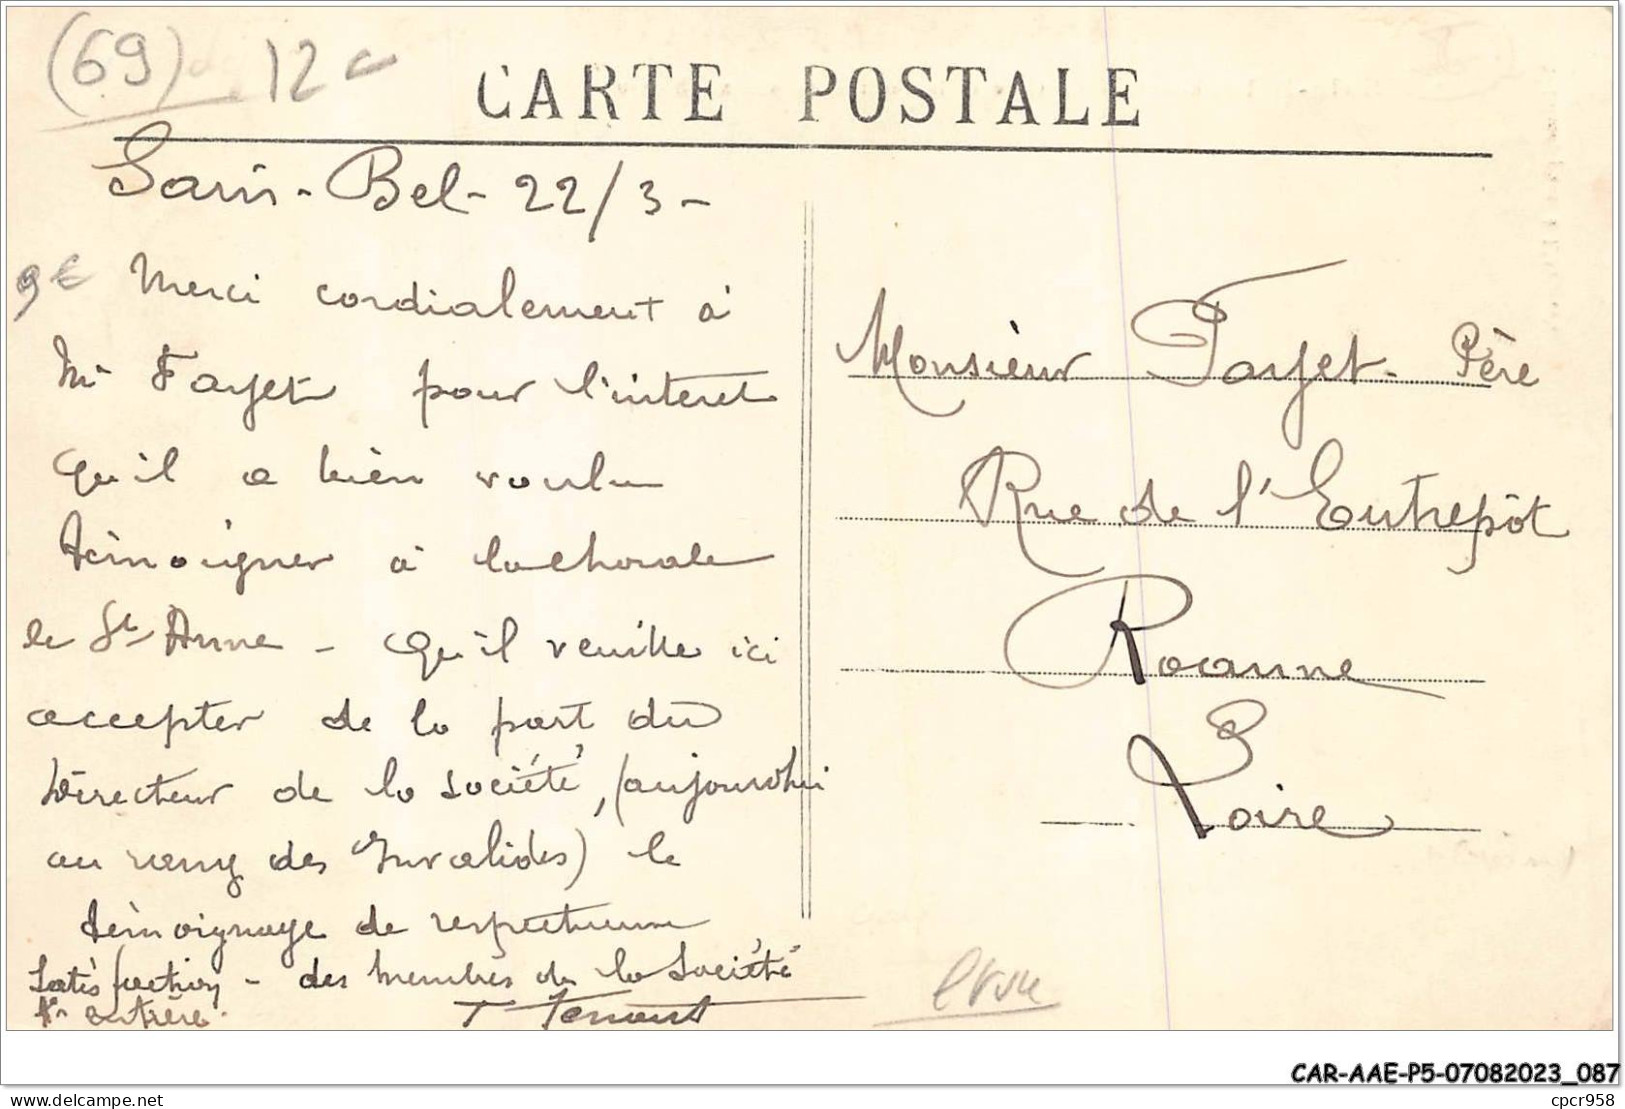 (69) 12
CARTE POSTALE
Sain-Bel- 22/3-
9€ Merci cordialement à
Mr Fayet pour l'interet
qu'il a bien voulu
témoigner à la chorale
de Ste Anne - Qu'il veuille ici
accepter de la part du
Directeur de la Société, (aujourd'hui
au rang des Invalides) le
témoignage de respectueuse
Satisfaction - des membres de la Société
entière.
Monsieur Fayet. Père
Rue de l'Entrepôt
Roanne
Loire
CAR-AAE-P5-07082023_087
delcampe.net
cpcr958